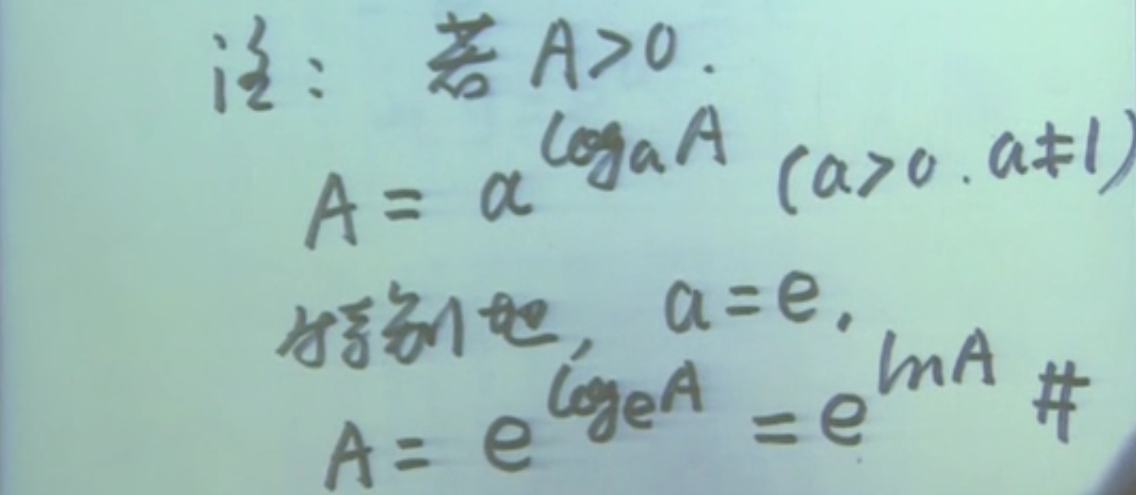 注: 若 A>0.
A = a^{log_a A} (a>0. a≠1)
特别地, a=e.
A = e^{log_e A} = e^{ln A} #